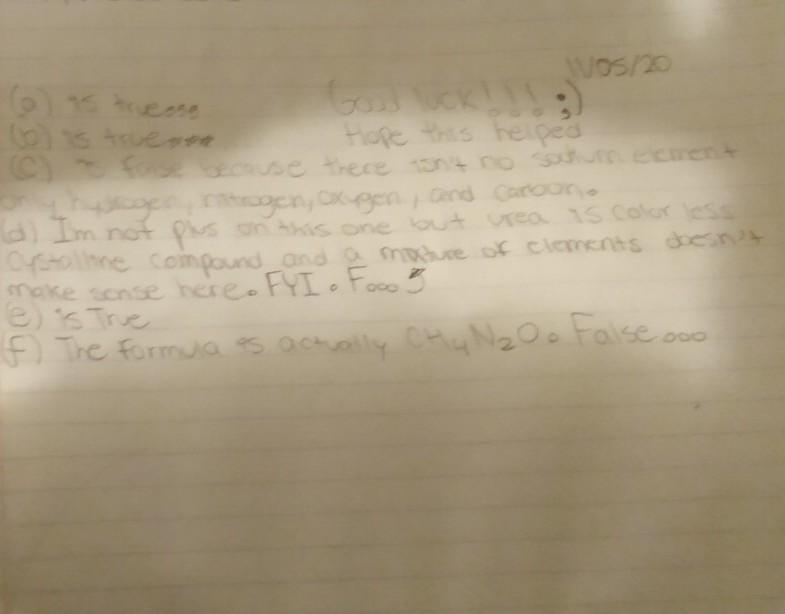 11/05/20
(a) is true... Good luck!!! ;)
(b) is true... Hope this helped
(c) is false because there isn't no sodium element
only hydrogen, nitrogen, oxygen, and carbon.
(d) I'm not plus on this one but urea is color less
cystalline compound and a mixture of elements doesn't
make sense here. FYI. F...
(e) is True
(f) The formula is actually CH4N2O. False...